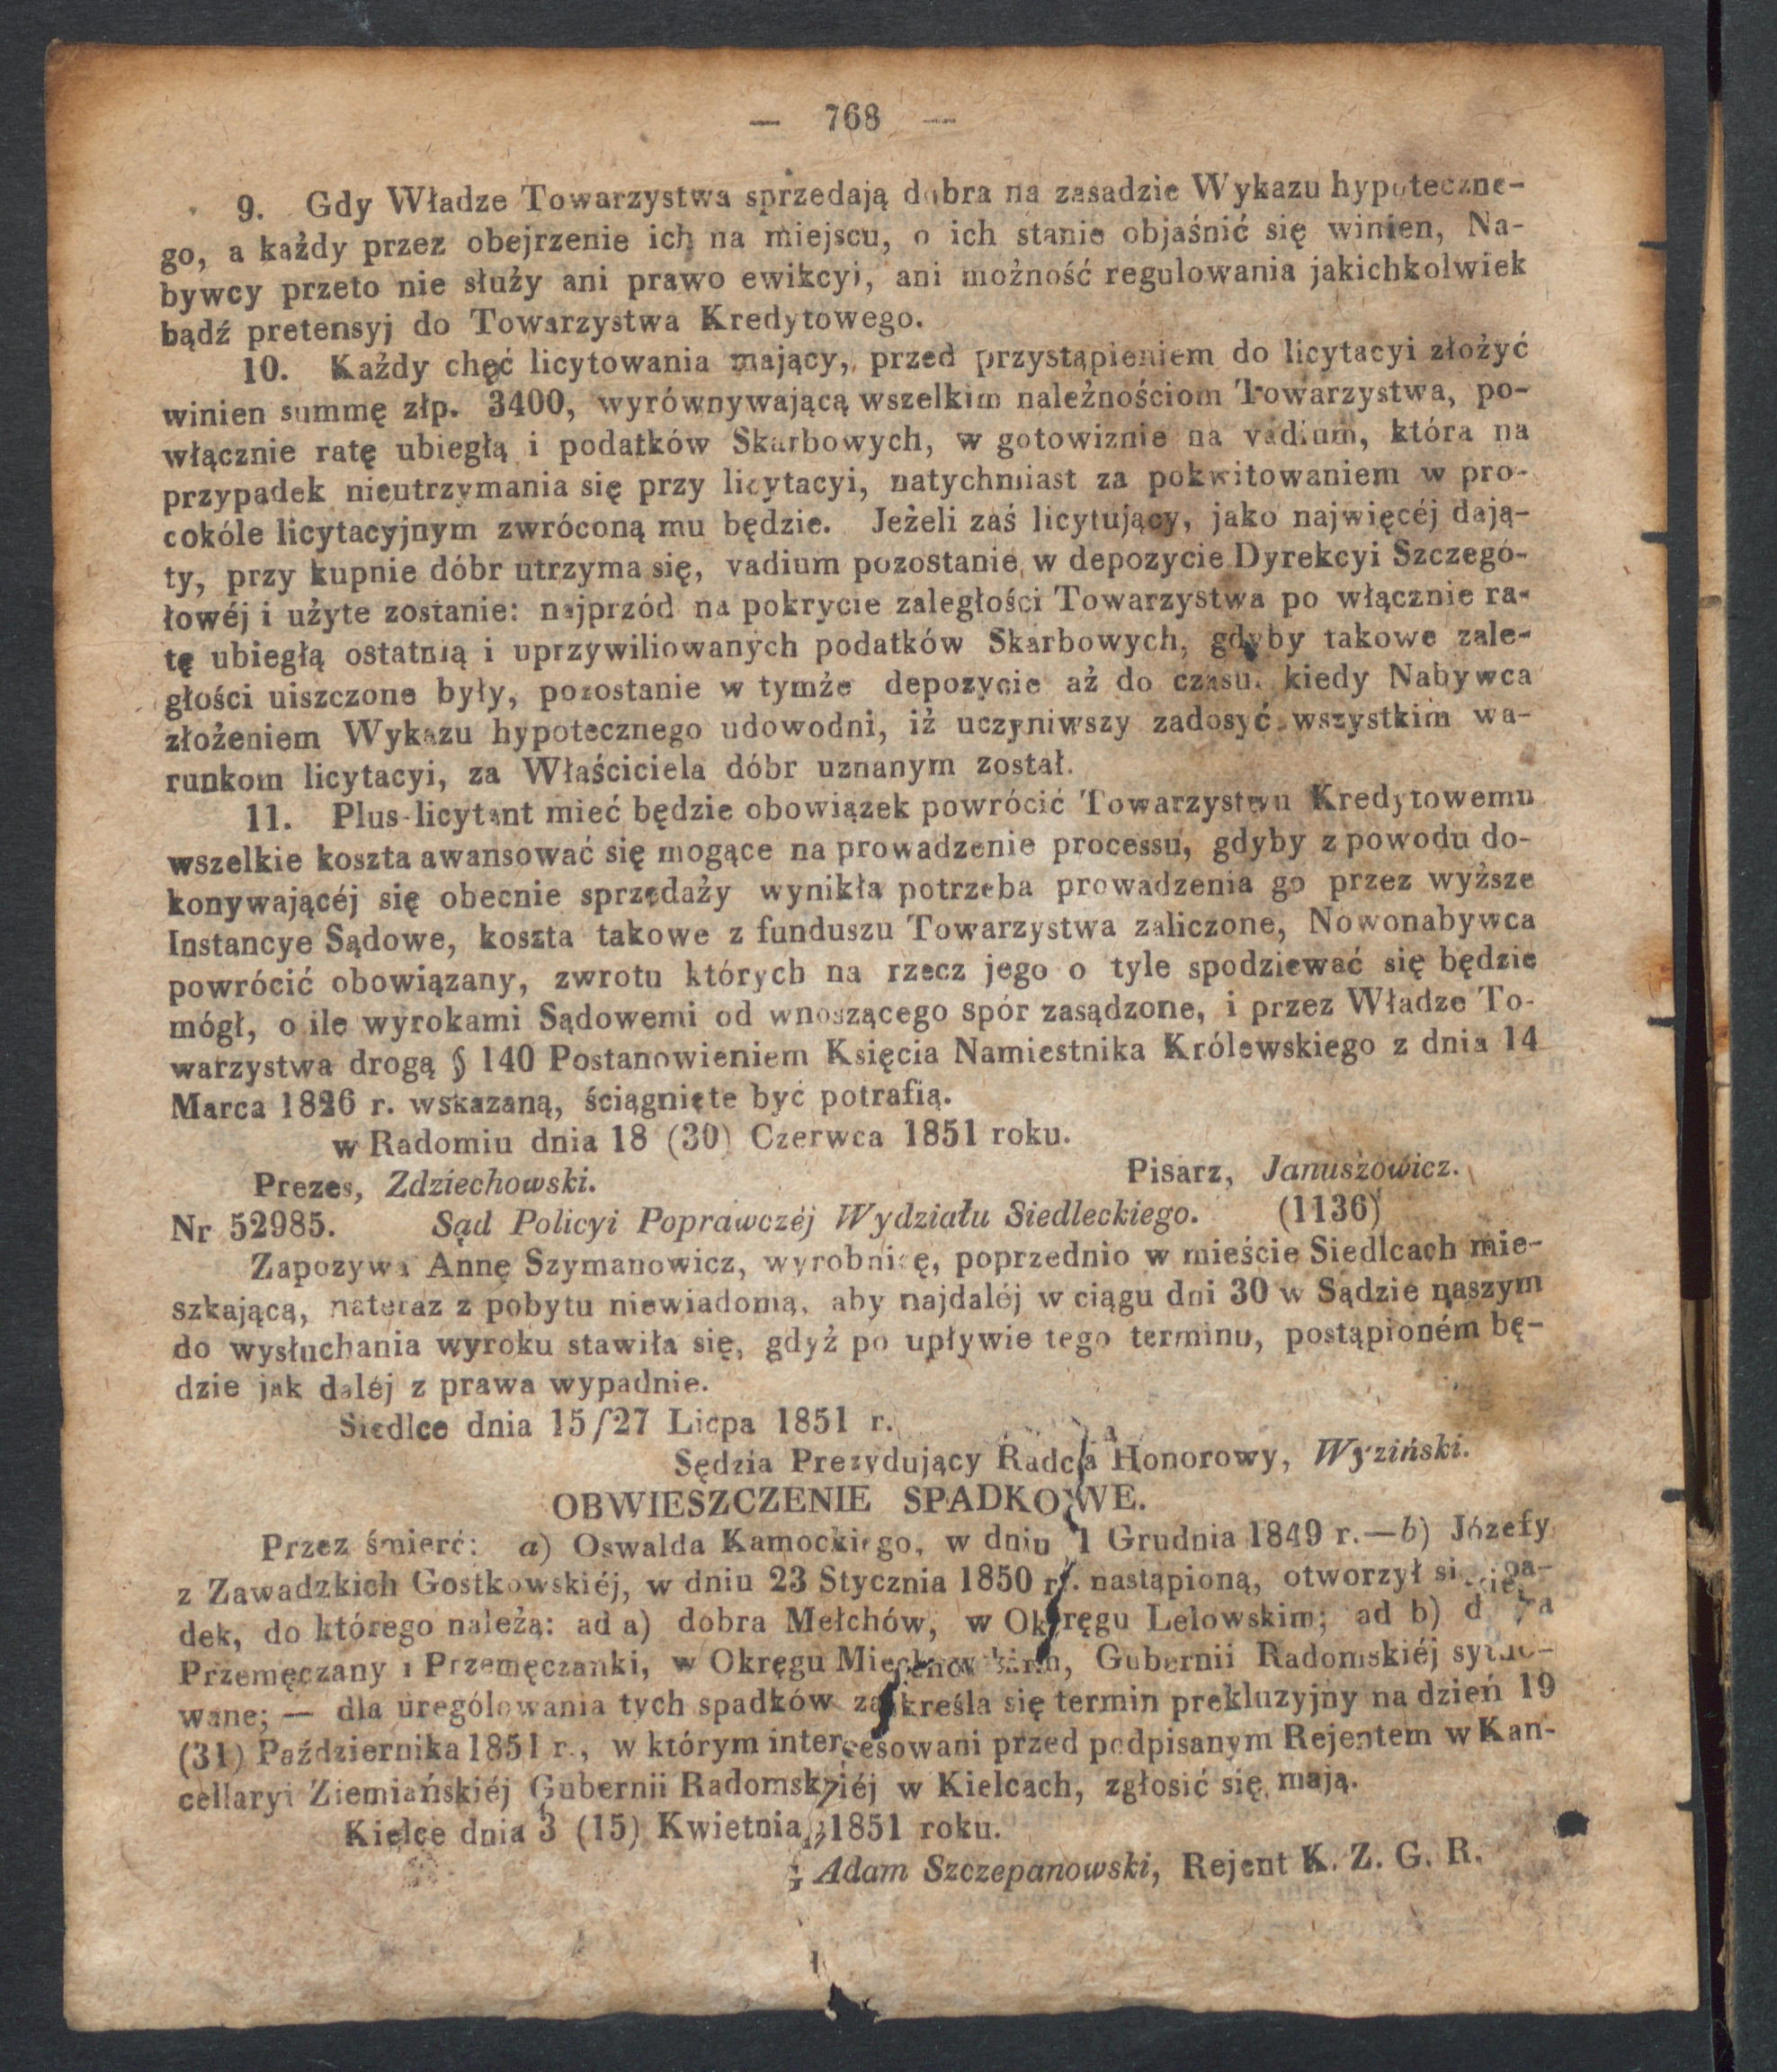 — 768 —
9. Gdy Władze Towarzystwa sprzedają dobra na zasadzie Wykazu hypoteczne-
go, a każdy przez obejrzenie ich na miejscu, o ich stanie objaśnić się winien, Na-
bywcy przeto nie służy ani prawo ewikcyi, ani możność regulowania jakichkolwiek
bądź pretensyj do Towarzystwa Kredytowego.
10. Każdy chęć licytowania mający, przed przystąpieniem do licytacyi złożyć
winien summę złp. 3400, wyrównywającą wszelkim należnościom Towarzystwa, po-
włącznie ratę ubiegłą i podatków Skarbowych, w gotowiznie na vadium, która na
przypadek nieutrzymania się przy licytacyi, natychmiast za pokwitowaniem w pro-
cokóle licytacyjnym zwróconą mu będzie. Jeżeli zaś licytujący, jako najwięcéj dają-
ty, przy kupnie dóbr utrzyma się, vadium pozostanie w depozycie Dyrekcyi Szczegó-
łowéj i użyte zostanie: najprzód na pokrycie zaległości Towarzystwa po włącznie ra-
tę ubiegłą ostatnią i uprzywiliowanych podatków Skarbowych, gdyby takowe zale-
głości uiszczone były, pozostanie w tymże depozycie aż do czasu, kiedy Nabywca
złożeniem Wykazu hypotecznego udowodni, iż uczyniwszy zadosyć wszystkim wa-
runkom licytacyi, za Właściciela dóbr uznanym został.
11. Plus-licytant mieć będzie obowiązek powrócić Towarzystwu Kredytowemu
wszelkie koszta awansować się mogące na prowadzenie processu, gdyby z powodu do-
konywającéj się obecnie sprzedaży wynikła potrzeba prowadzenia go przez wyższe
Instancye Sądowe, koszta takowe z funduszu Towarzystwa zaliczone, Nowonabywca
powrócić obowiązany, zwrotu których na rzecz jego o tyle spodziewać się będzie
mógł, o ile wyrokami Sądowemi od wnoszącego spór zasądzone, i przez Władze To-
warzystwa drogą § 140 Postanowieniem Księcia Namiestnika Królewskiego z dnia 14
Marca 1826 r. wskazaną, ściągnięte być potrafią.
w Radomiu dnia 18 (30) Czerwca 1851 roku.
Prezes, Zdziechowski. Pisarz, Januszowicz.
Nr 52985. Sąd Policyi Poprawczéj Wydziału Siedleckiego. (1136)
Zapozywa Annę Szymanowicz, wyrobnicę, poprzednio w mieście Siedlcach mie-
szkającą, nateraz z pobytu niewiadomą, aby najdaléj w ciągu dni 30 w Sądzie naszym
do wysłuchania wyroku stawiła się, gdyż po upływie tego terminu, postąpioném bę-
dzie jak daléj z prawa wypadnie.
Siedlce dnia 15/27 Licpa 1851 r.
Sędzia Prezydujący Radca Honorowy, Wyziński.
OBWIESZCZENIE SPADKOWE.
Przez śmierć: a) Oswalda Kamockiego, w dniu 1 Grudnia 1849 r.—b) Józefy
z Zawadzkich Gostkowskiéj, w dniu 23 Stycznia 1850 r. nastąpioną, otworzył się spa-
dek, do którego należą: ad a) dobra Mełchów, w Okręgu Lelowskim; ad b) dobra
Przemęczany i Przemęczanki, w Okręgu Miechowskim, Gubernii Radomskiéj sytuo-
wane; — dla urególowania tych spadków zakreśla się termin prekluzyjny na dzień 19
(31) Października 1851 r., w którym interesowani przed podpisanym Rejentem w Kan-
cellaryi Ziemiańskiéj Gubernii Radomskiéj w Kielcach, zgłosić się mają.
Kielce dnia 3 (15) Kwietnia 1851 roku.
Adam Szczepanowski, Rejent K. Z. G. R.